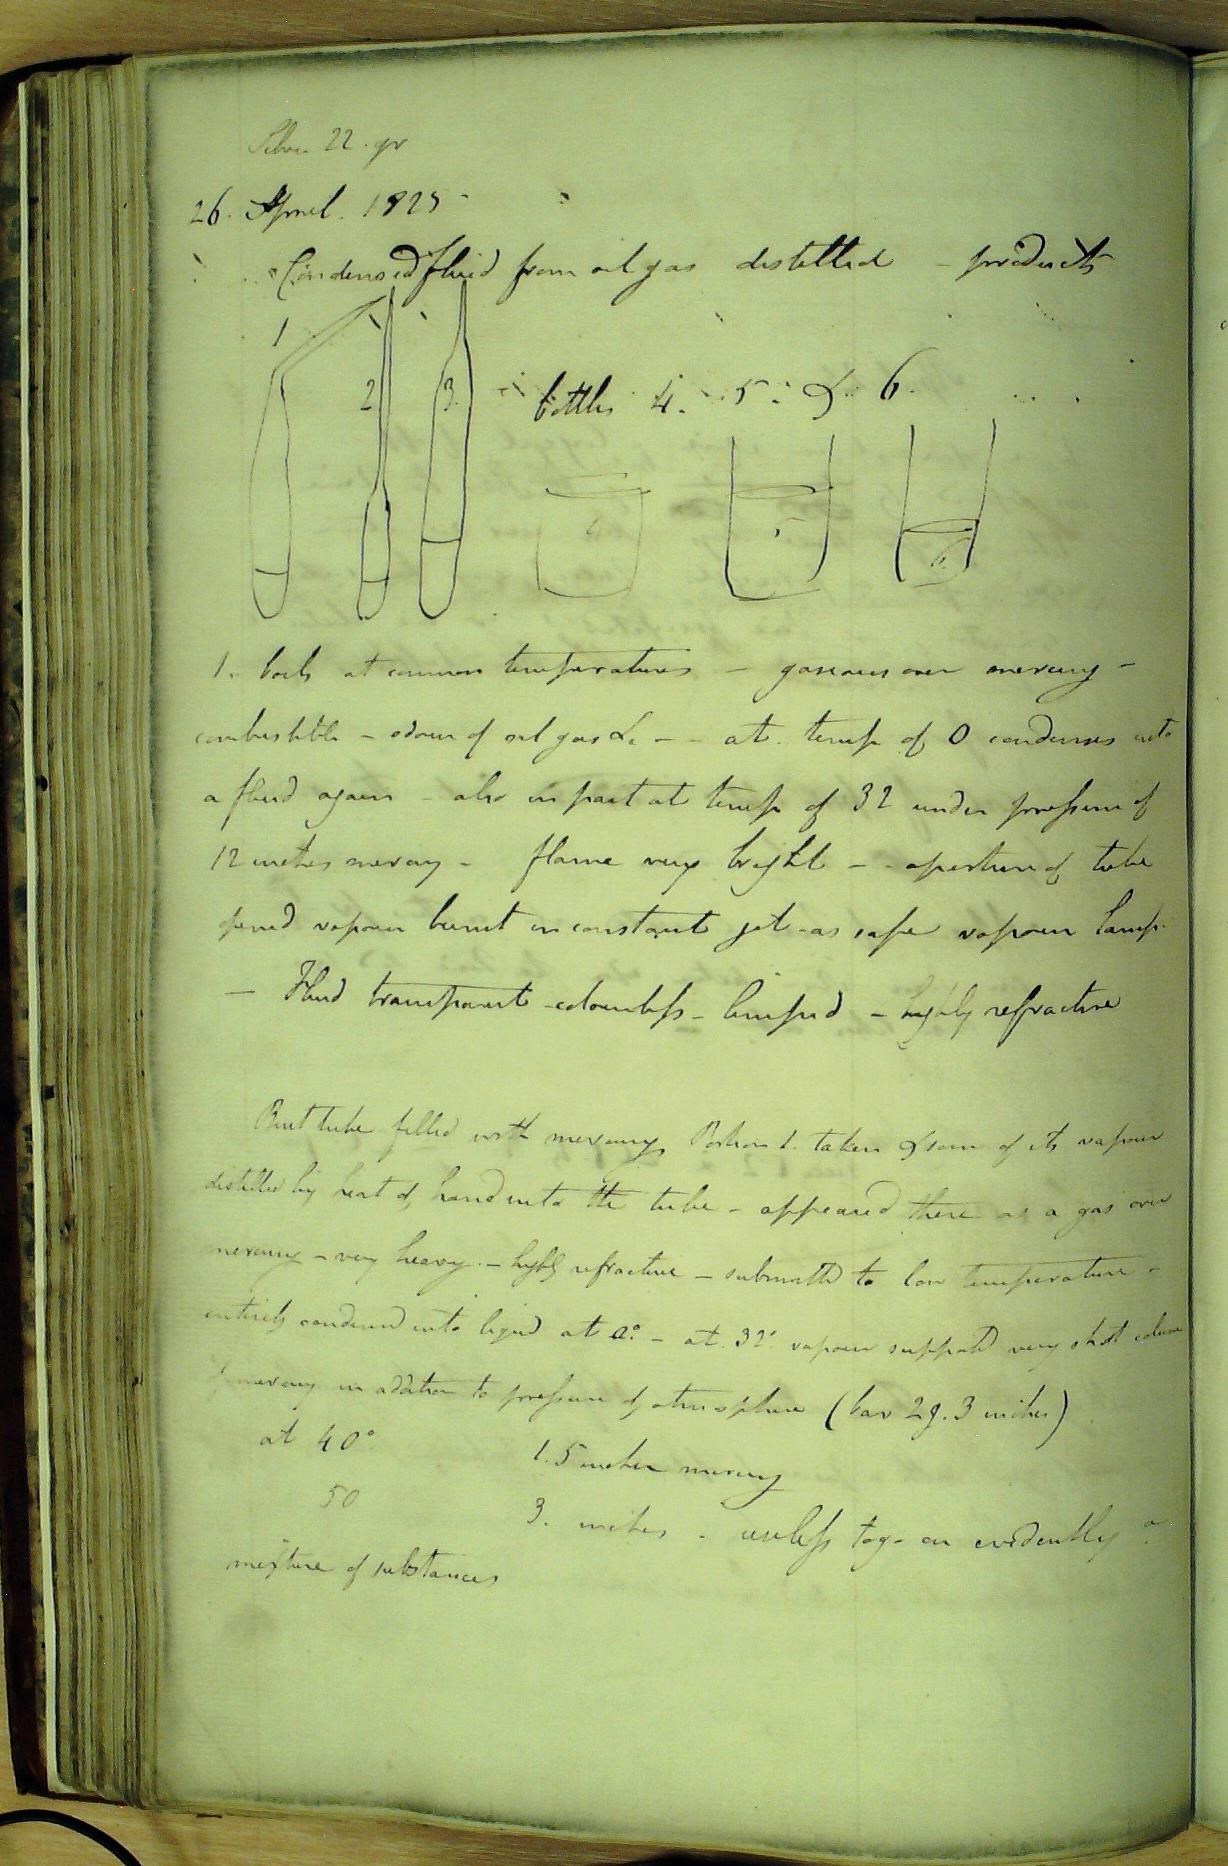 Silver 22. gr
26. April. 1825 -
Condensed fluid from oil gas distilled - products
1
2
3.
bottles 4. 5. & 6.
4
5
6
1. boils at common temperatures - gaseous over mercury -
combustible - odour of oil gas &c - - at temp of 0 condenses into
a fluid again - also in part at temp of 32 under pressure of
12 inches mercury - flame very bright - - aperture of tube
opened vapour burnt in constant jet - as safe vapour lamp.
- Fluid transparent - colourless - limpid - highly refractive
Bent tube filled with mercury Portion 1. taken & some of its vapour
distilled by heat of hand into the tube - appeared there as a gas over
mercury - very heavy. - highly refractive - submitted to low temperature -
entirely condensed into liquid at 0°. - at 32°. vapour supported very short column
of mercury in addition to pressure of atmosphere (bar 29.3 inches)
at 40° 1.5 inches mercury
50 3. inches - useless to go on evidently a
mixture of substances